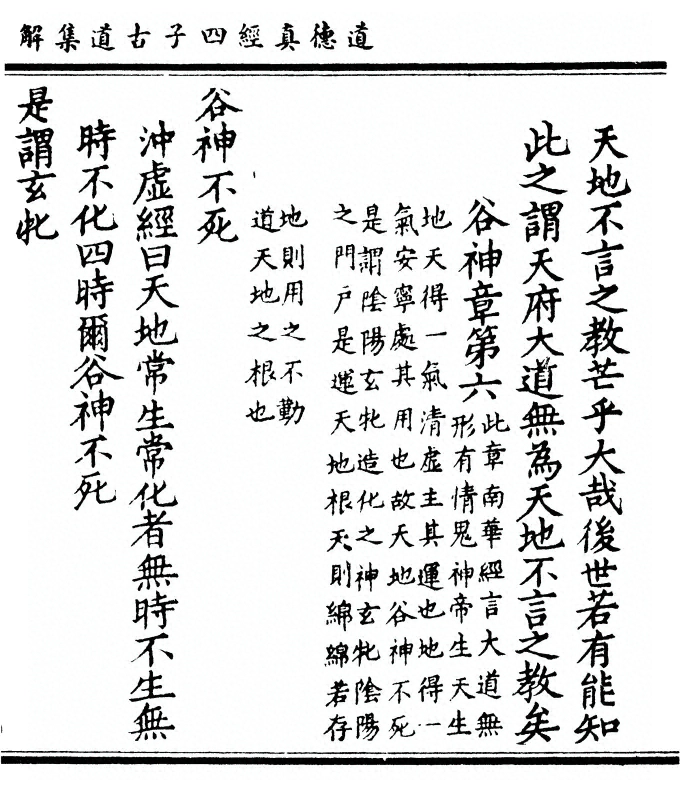 道德真經四子古道集解
天地不言之教芒乎大哉後世若有能知
此之謂天府大道無為天地不言之教矣
谷神章第六
此章南華經言大道無
形有情鬼神帝生天生
地天得一氣清虛主其運也地得一
氣安寧處其用也故天地谷神不死
是謂陰陽玄牝造化之神玄牝陰陽
之門戶是運天地根天則綿綿若存
地則用之不勤
道天地之根也
谷神不死
沖虛經曰天地常生常化者無時不生無
時不化四時爾谷神不死
是謂玄牝